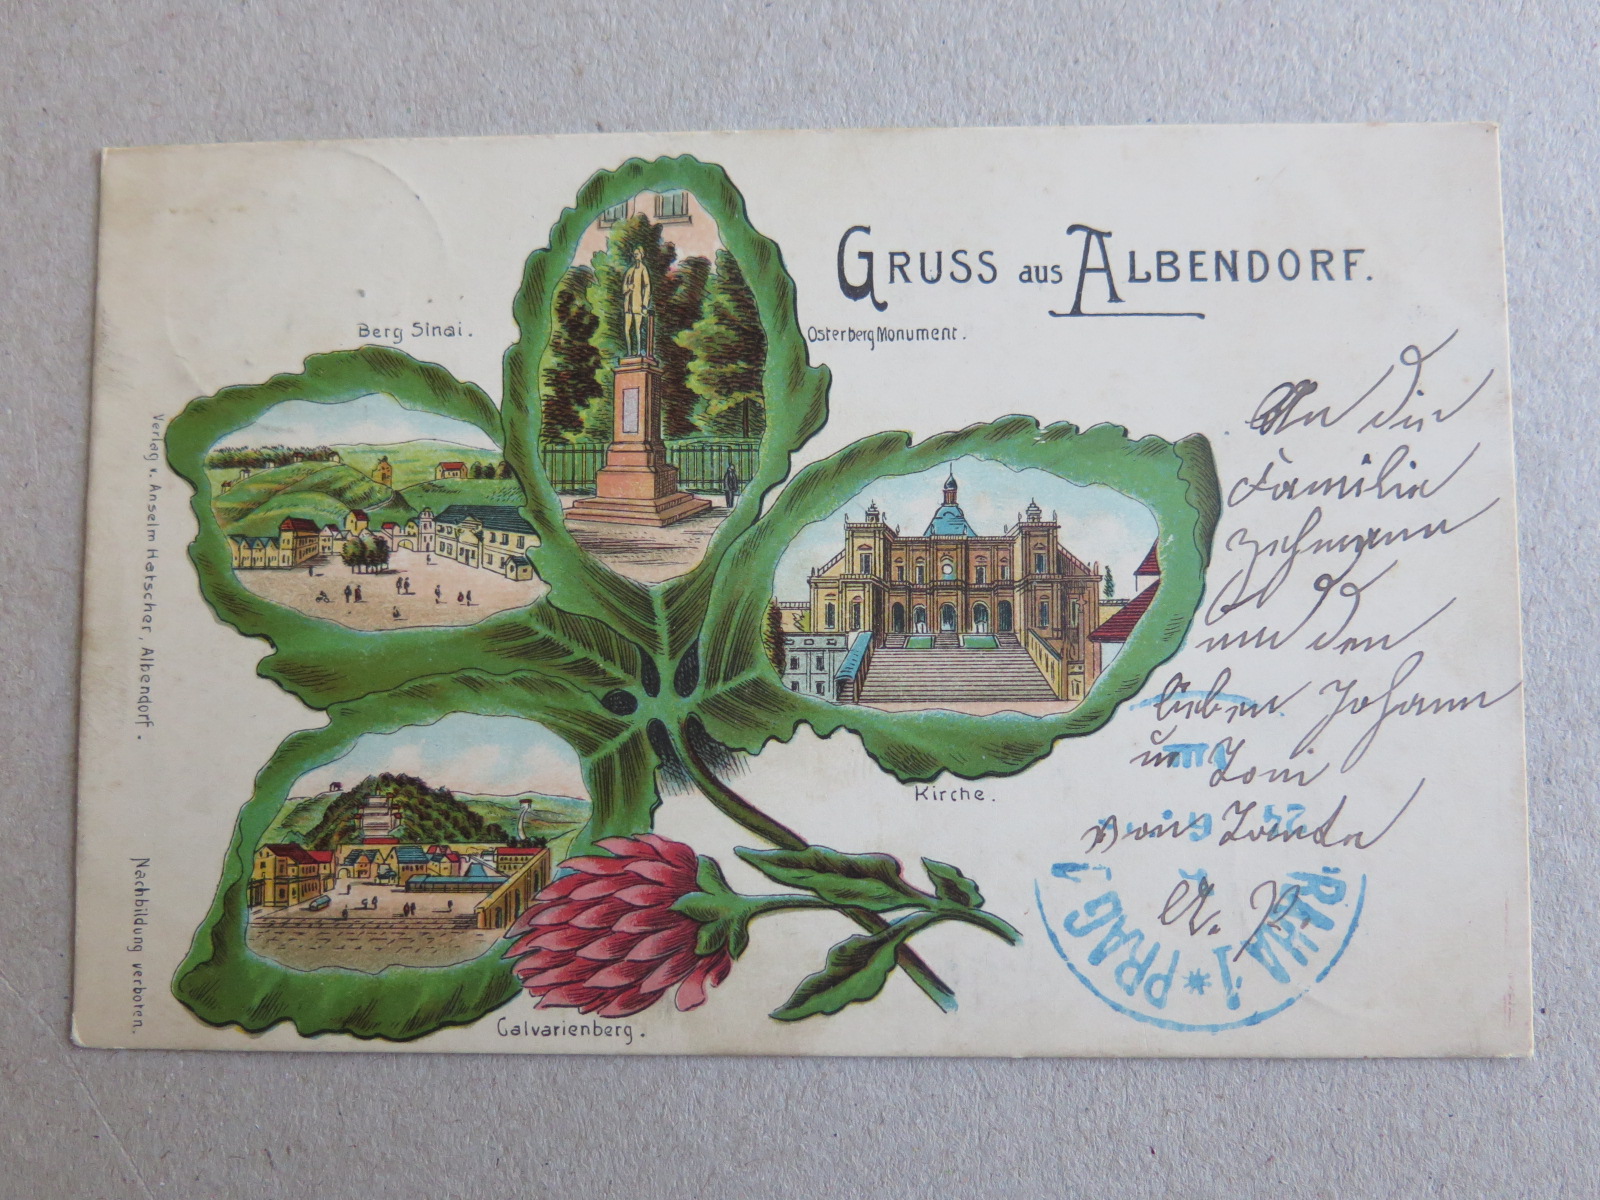 GRUSS aus ALBENDORF.
Berg Sinai.
Osterberg Monument.
Kirche.
Calvarienberg.
Verlag v. Anselm Hatscher, Albendorf.
Nachbildung verboten.
An die
Familie
um den
lieben Johann
u. Toni
von Tante
A. P.
PRAHA 1 * PRAG 1